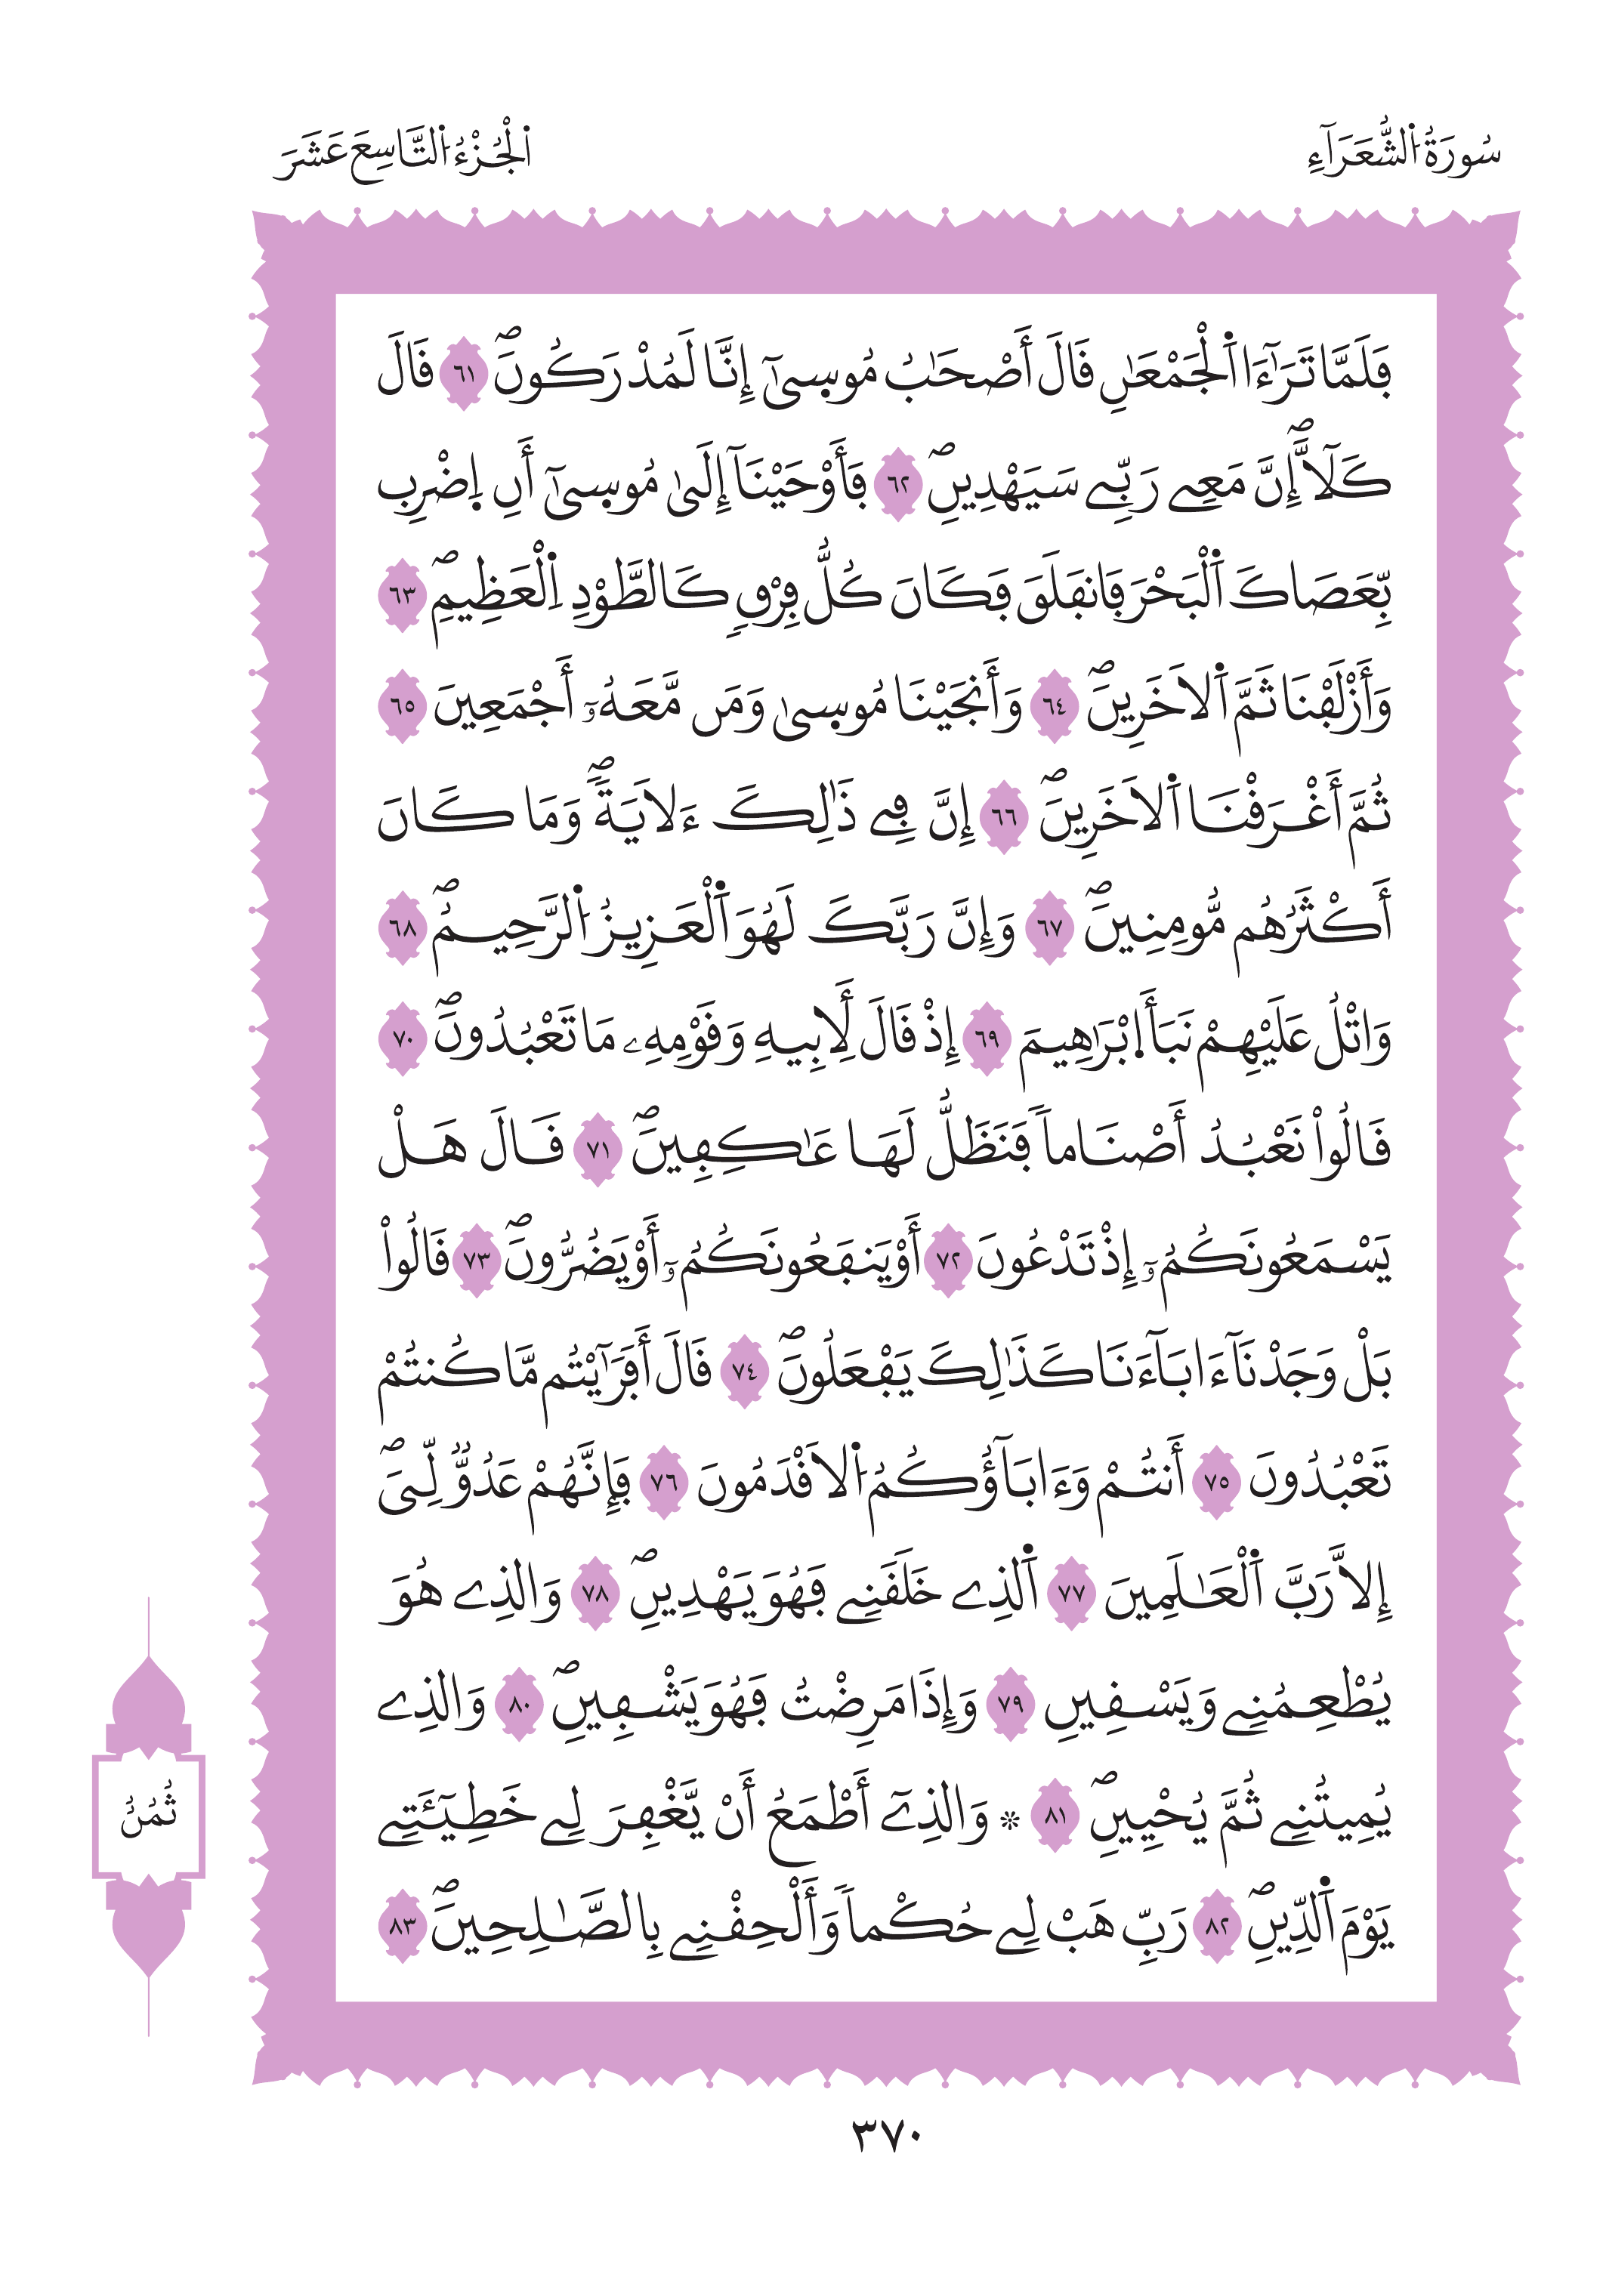 سُورَةُ اُ۬لشُّعَرَآءِ
اَ۬لْجُزْءُ اُ۬لتَّاسِعَ عَشَرَ
فَلَمَّا تَرَٰٓءَا اَ۬لْجَمْعَٰنِ قَالَ أَصْحَٰبُ مُوس۪ىٰٓ إِنَّا لَمُدْرَكُونَۖ ٦١ قَالَ
كَلَّآۖ إِنَّ مَعِے رَبِّے سَيَهْدِينِۖ ٦٢ فَأَوْحَيْنَآ إِلَىٰ مُوس۪ىٰٓ أَنِ اِ۪ضْرِب
بِّعَصَاكَ اَ۬لْبَحْرَ فَانفَلَقَ فَكَانَ كُلُّ فِرْقٖ كَالطَّوْدِ اِ۬لْعَظِيمِۖ ٦٣
وَأَزْلَفْنَا ثَمَّ اَ۬لَاخَرِينَۖ ٦٤ وَأَنجَيْنَا مُوس۪ىٰ وَمَن مَّعَهُۥٓ أَجْمَعِينَ ٦٥
ثُمَّ أَغْرَقْنَا اَ۬لَاخَرِينَۖ ٦٦ إِنَّ فِے ذَٰلِكَ ءَلَايَةٗۖ وَمَا كَانَ
أَكْثَرُهُم مُّومِنِينَۖ ٦٧ وَإِنَّ رَبَّكَ لَهُوَ اَ۬لْعَزِيزُ اُ۬لرَّحِيمُۖ ٦٨
وَاتْلُ عَلَيْهِمْ نَبَأَ اِ۪بْرَٰهِيمَ ٦٩ إِذْ قَالَ لِأَبِيهِ وَقَوْمِهِۦ مَا تَعْبُدُونَۖ ٧٠
قَالُواْ نَعْبُدُ أَصْنَاماٗ فَنَظَلُّ لَهَا عَٰكِفِينَۖ ٧١ قَالَ هَلْ
يَسْمَعُونَكُمُۥٓ إِذْ تَدْعُونَ ٧٢ أَوْ يَنفَعُونَكُمُۥٓ أَوْ يَضُرُّونَۖ ٧٣ قَالُواْ
بَلْ وَجَدْنَآ ءَابَآءَنَا كَذَٰلِكَ يَفْعَلُونَۖ ٧٤ قَالَ أَفَرَٰٓيْتُم مَّا كُنتُمْ
تَعْبُدُونَ ٧٥ أَنتُمْ وَءَابَآؤُكُمُ اُ۬لَاقْدَمُونَ ٧٦ فَإِنَّهُمْ عَدُوّٞ لِّيَۖ
إِلَّا رَبَّ اَ۬لْعَٰلَمِينَ ٧٧ اَ۬لذِے خَلَقَنِے فَهُوَ يَهْدِينِۖ ٧٨ وَالذِے هُوَ
يُطْعِمُنِے وَيَسْقِينِ ٧٩ وَإِذَا مَرِضْتُ فَهُوَ يَشْفِينِۖ ٨٠ وَالذِے
يُمِيتُنِے ثُمَّ يُحْيِينِۖ ٨١ * وَالذِےٓ أَطْمَعُ أَنْ يَّغْفِرَ لِے خَطِيٓـَٔتِے
يَوْمَ اَ۬لدِّينِۖ ٨٢ رَبِّ هَبْ لِے حُكْماٗ وَأَلْحِقْنِے بِالصَّٰلِحِينَۖ ٨٣
ثُمُنُ
٣٧٠